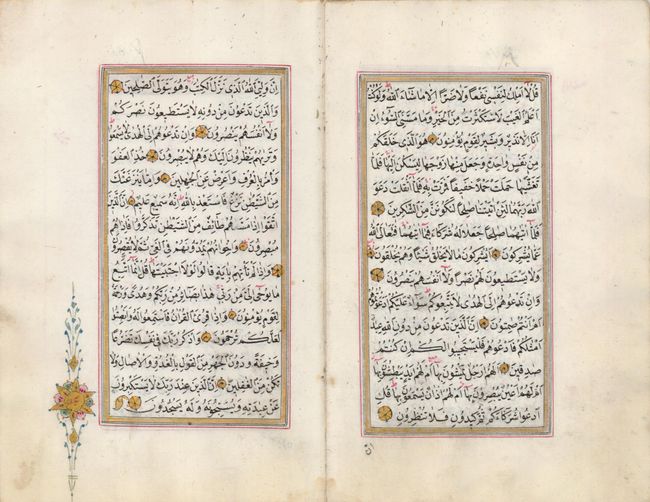 قُلْ لَا اَمْلِكُ لِنَفْسِى نَفْعًا وَلَا ضَرًّا اِلَّا مَا شَاءَ اللّٰهُ وَلَوْ كُنْتُ
اَعْلَمُ الْغَيْبَ لَاسْتَكْثَرْتُ مِنَ الْخَيْرِ وَمَا مَسَّنِىَ السُّوءُ اِنْ
اَنَا اِلَّا نَذِيرٌ وَبَشِيرٌ لِقَوْمٍ يُؤْمِنُونَ هُوَ الَّذِى خَلَقَكُمْ
مِنْ نَفْسٍ وَاحِدَةٍ وَجَعَلَ مِنْهَا زَوْجَهَا لِيَسْكُنَ اِلَيْهَا فَلَمَّا
تَغَشّٰيهَا حَمَلَتْ حَمْلًا خَفِيفًا فَمَرَّتْ بِهِ فَلَمَّا اَثْقَلَتْ دَعَوَا
اللّٰهَ رَبَّهُمَا لَئِنْ اٰتَيْتَنَا صَالِحًا لَنَكُونَنَّ مِنَ الشَّاكِرِينَ
فَلَمَّا اٰتٰيهُمَا صَالِحًا جَعَلَا لَهُ شُرَكَاءَ فِيمَا اٰتٰيهُمَا فَتَعَالَى اللّٰهُ
عَمَّا يُشْرِكُونَ اَيُشْرِكُونَ مَا لَا يَخْلُقُ شَيْئًا وَهُمْ يُخْلَقُونَ
وَلَا يَسْتَطِيعُونَ لَهُمْ نَصْرًا وَلَا اَنْفُسَهُمْ يَنْصُرُونَ
وَاِنْ تَدْعُوهُمْ اِلَى الْهُدٰى لَا يَتَّبِعُوكُمْ سَوَاءٌ عَلَيْكُمْ اَدَعَوْتُمُوهُمْ
اَمْ اَنْتُمْ صَامِتُونَ اِنَّ الَّذِينَ تَدْعُونَ مِنْ دُونِ اللّٰهِ عِبَادٌ
اَمْثَالُكُمْ فَادْعُوهُمْ فَلْيَسْتَجِيبُوا لَكُمْ اِنْ كُنْتُمْ
صَادِقِينَ اَلَهُمْ اَرْجُلٌ يَمْشُونَ بِهَا اَمْ لَهُمْ اَيْدٍ يَبْطِشُونَ بِهَا
اَمْ لَهُمْ اَعْيُنٌ يُبْصِرُونَ بِهَا اَمْ لَهُمْ اٰذَانٌ يَسْمَعُونَ بِهَا قُلِ
ادْعُوا شُرَكَاءَكُمْ ثُمَّ كِيدُونِ فَلَا تُنْظِرُونِ
ان
اِنَّ وَلِيِّىَ اللّٰهُ الَّذِى نَزَّلَ الْكِتَابَ وَهُوَ يَتَوَلَّى الصَّالِحِينَ
وَالَّذِينَ تَدْعُونَ مِنْ دُونِهِ لَا يَسْتَطِيعُونَ نَصْرَكُمْ
وَلَا اَنْفُسَهُمْ يَنْصُرُونَ وَاِنْ تَدْعُوهُمْ اِلَى الْهُدٰى لَا يَسْمَعُوا
وَتَرٰيهُمْ يَنْظُرُونَ اِلَيْكَ وَهُمْ لَا يُبْصِرُونَ خُذِ الْعَفْوَ
وَأْمُرْ بِالْعُرْفِ وَاَعْرِضْ عَنِ الْجَاهِلِينَ وَاِمَّا يَنْزَغَنَّكَ
مِنَ الشَّيْطَانِ نَزْغٌ فَاسْتَعِذْ بِاللّٰهِ اِنَّهُ سَمِيعٌ عَلِيمٌ اِنَّ الَّذِينَ
اتَّقَوْا اِذَا مَسَّهُمْ طَائِفٌ مِنَ الشَّيْطَانِ تَذَكَّرُوا فَاِذَا هُمْ
مُبْصِرُونَ وَاِخْوَانُهُمْ يَمُدُّونَهُمْ فِى الْغَىِّ ثُمَّ لَا يُقْصِرُونَ
وَاِذَا لَمْ تَأْتِهِمْ بِاٰيَةٍ قَالُوا لَوْلَا اجْتَبَيْتَهَا قُلْ اِنَّمَا اَتَّبِعُ
مَا يُوحٰى اِلَىَّ مِنْ رَبِّى هٰذَا بَصَائِرُ مِنْ رَبِّكُمْ وَهُدًى وَرَحْمَةٌ
لِقَوْمٍ يُؤْمِنُونَ وَاِذَا قُرِئَ الْقُرْاٰنُ فَاسْتَمِعُوا لَهُ وَاَنْصِتُوا
لَعَلَّكُمْ تُرْحَمُونَ وَاذْكُرْ رَبَّكَ فِى نَفْسِكَ تَضَرُّعًا
وَخِيفَةً وَدُونَ الْجَهْرِ مِنَ الْقَوْلِ بِالْغُدُوِّ وَالْاٰصَالِ وَلَا
تَكُنْ مِنَ الْغَافِلِينَ اِنَّ الَّذِينَ عِنْدَ رَبِّكَ لَا يَسْتَكْبِرُونَ
عَنْ عِبَادَتِهِ وَيُسَبِّحُونَهُ وَلَهُ يَسْجُدُونَ